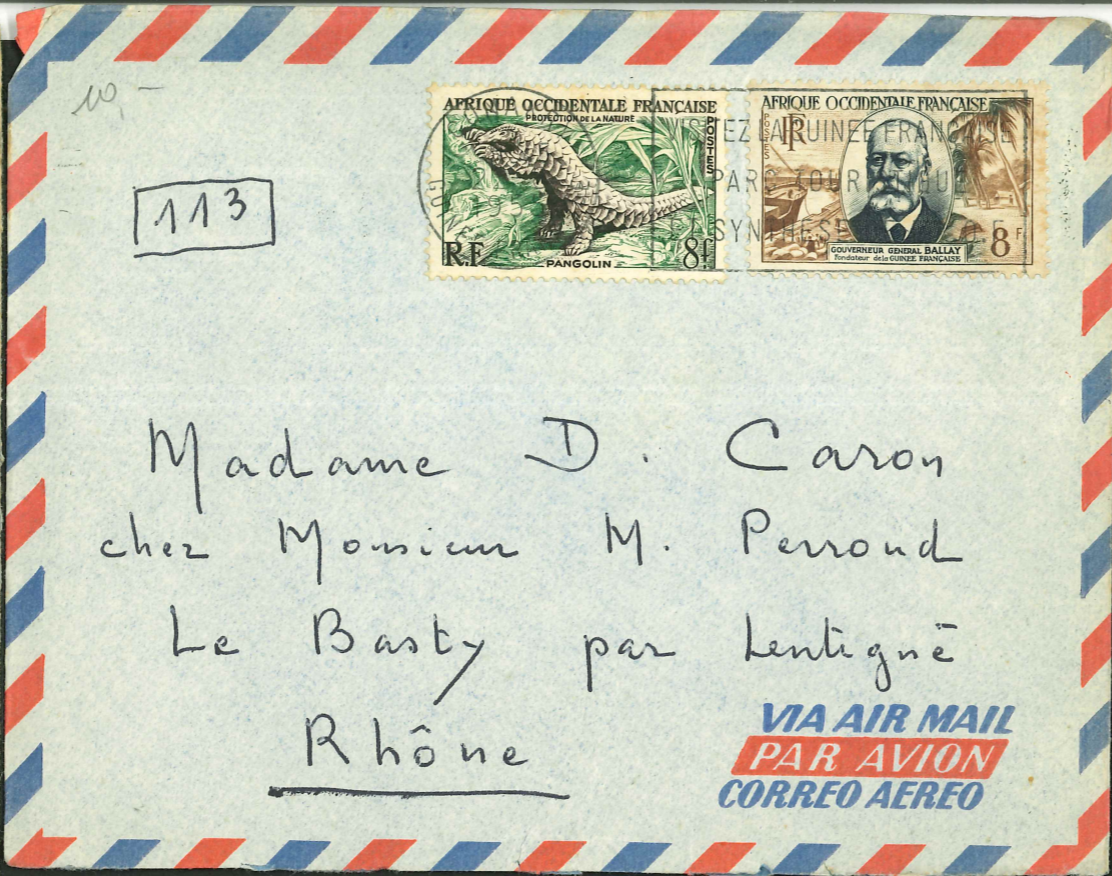 10,-
113
AFRIQUE OCCIDENTALE FRANÇAISE
PROTECTION DE LA NATURE
POSTES
R.F
PANGOLIN
8f
AFRIQUE OCCIDENTALE FRANÇAISE
POSTES
RF
GOUVERNEUR GENERAL BALLAY
Fondateur de la GUINÉE FRANÇAISE
8F
LA GUINEE FRANÇAISE
PARC TOUR
SYNTHESE
Madame D. Caron
chez Monsieur M. Perroud
Le Basty par Lentigné
Rhône
VIA AIR MAIL
PAR AVION
CORREO AEREO